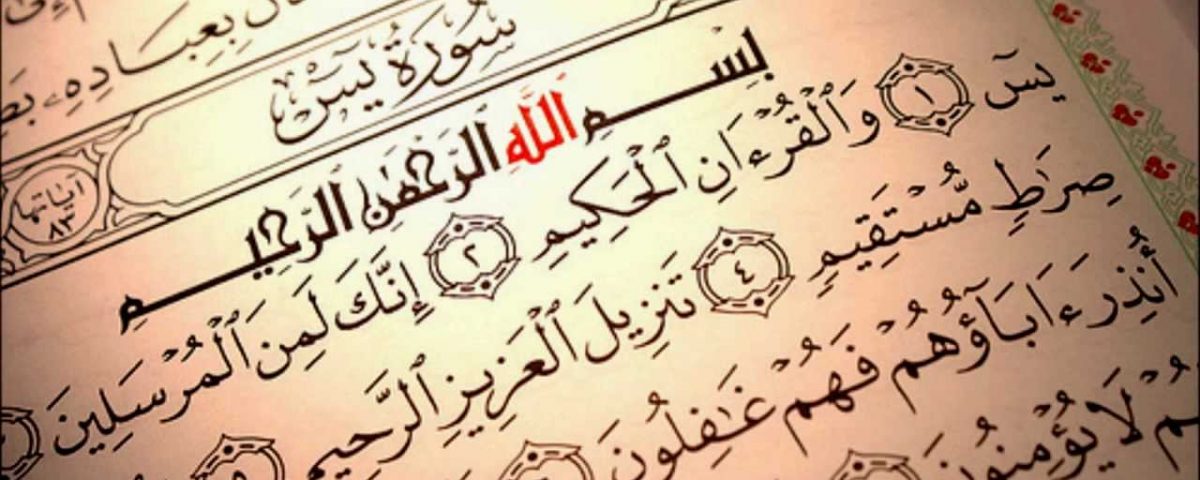 بِعِبَادِهِۦ
سُورَةُ يسٓ
آيَاتُهَا ٨٣
بِسْمِ ٱللَّهِ ٱلرَّحْمَٰنِ ٱلرَّحِيمِ
يسٓ ١ وَٱلْقُرْءَانِ ٱلْحَكِيمِ ٢ إِنَّكَ لَمِنَ ٱلْمُرْسَلِينَ
صِرَٰطٍ مُّسْتَقِيمٍ ٤ تَنزِيلَ ٱلْعَزِيزِ ٱلرَّحِيمِ
أُنذِرَ ءَابَآؤُهُمْ فَهُمْ غَٰفِلُونَ
لَا يُؤْمِنُونَ